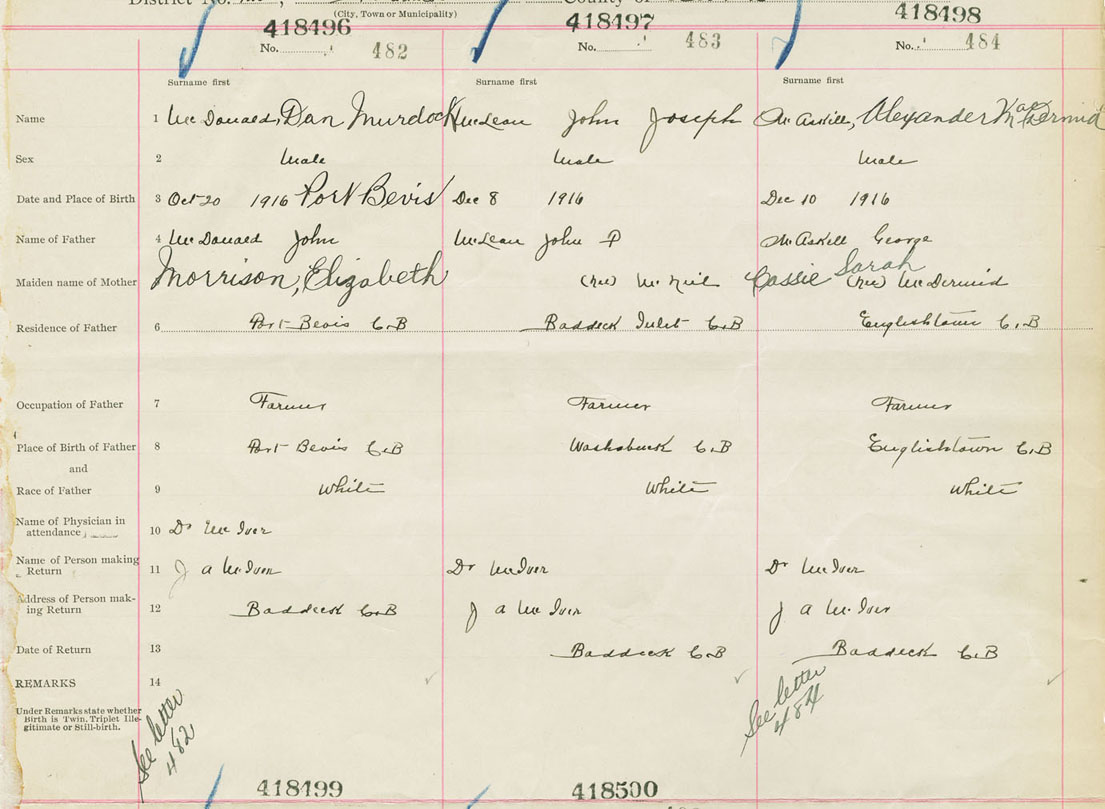 District No.
County of
(City, Town or Municipality)
418496 418497 418498
No. 482 No. 483 No. 484
Surname first Surname first Surname first
Name 1 McDonald, Dan Murdock McLean John Joseph McAskill, Alexander MacDermid
Sex 2 Male Male Male
Date and Place of Birth 3 Oct 20 1916 Port Bevis Dec 8 1916 Dec 10 1916
Name of Father 4 McDonald John McLean John P McAskell George
Maiden name of Mother Morrison, Elizabeth (nee) McNeil Cassie Sarah (nee) McDermid
Residence of Father 6 Port Bevis C.B Baddeck Inlet C.B Englishtown C.B
Occupation of Father 7 Farmer Farmer Farmer
Place of Birth of Father 8 Port Bevis C.B Washabuck C.B Englishtown C.B
and
Race of Father 9 White White White
Name of Physician in
attendance 10 Dr McIver
Name of Person making
Return 11 J A McIver Dr McIver Dr McIver
Address of Person mak-
ing Return 12 Baddeck C.B J A McIver J A McIver
Date of Return 13 Baddeck C.B Baddeck C.B
REMARKS 14
Under Remarks state whether
Birth is Twin, Triplet Ille-
gitimate or Still-birth.
See letter
482
See letter
484
418499 418500